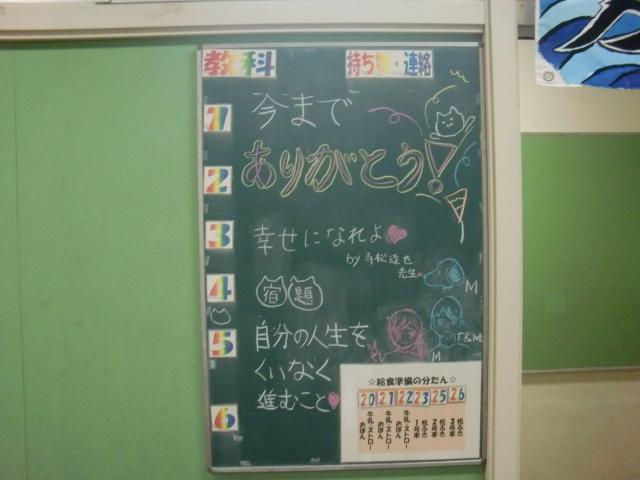 教科
持ち物・連絡
1
今まで
ありがとう!
2
3
幸せになれよ
by 寺松達也
先生
4
宿題
M
5
自分の人生を
くいなく
進むこと
T&M
M
6
☆給食準備の分たん☆
20 21 22 23 25 26
牛乳・ストロー おぼん
牛乳・ストロー おぼん
牛乳・ストロー おぼん
机ふき 1号車
机ふき 2号車
机ふき 3号車